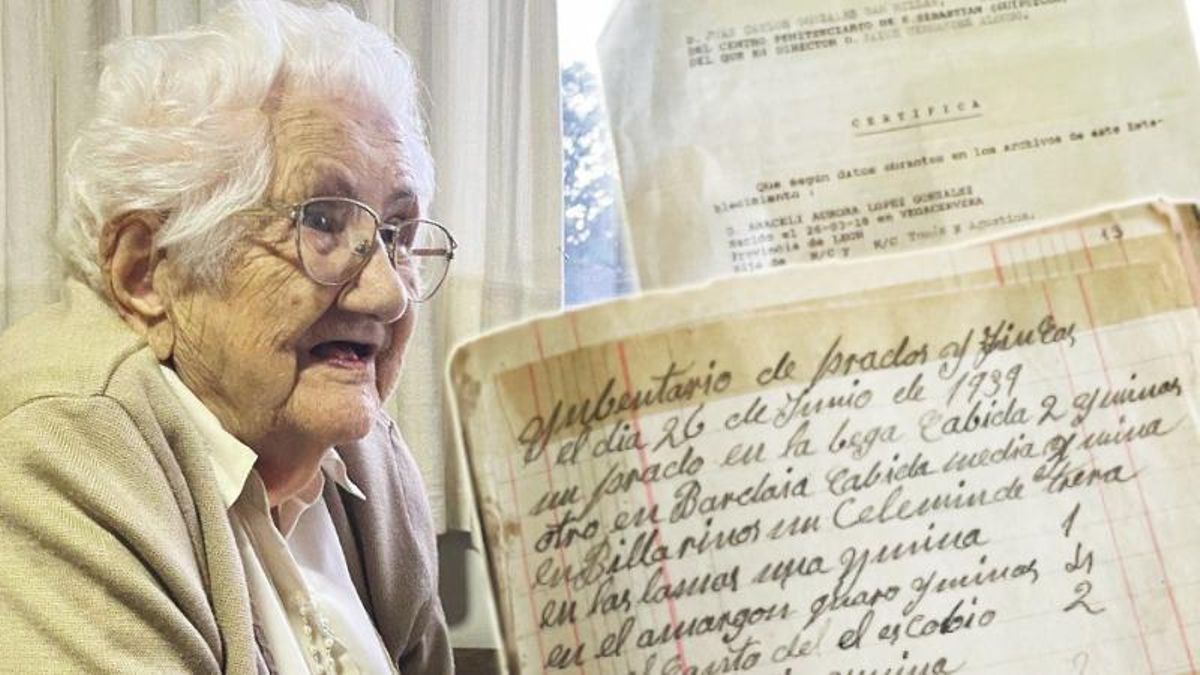 D. JUAN CARLOS GONZALEZ SAN MILLAN,
DEL CENTRO PENITENCIARIO DE S. SEBASTIAN
DEL QUE ES DIRECTOR D.
CERTIFICA
Que según datos obrantes en los archivos de este Esta-
blecimiento :
D. ARACELI AURORA LOPEZ GONZALEZ
Nacido el 26-03-18 en VEGACERVERA
Provincia de LEON
Hija de N/C y N/C Tomás y Agustina.
13
Ynbentario de prados y Fincas
el dia 26 de Junio de 1939
un prado en la bega Cabida 2 yminas
otro en Barclaia Cabida media ymina
en Billarinos un Celemin de
en las lamas una ymina 1
en el amargon guaro yminas
del el escobio 2
ymina